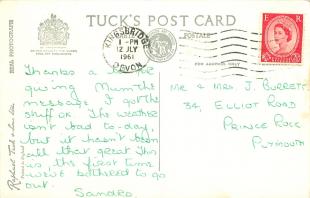 TUCK'S POST CARD
KINGSBRIDGE
1 - PM
12 JLY
1961
DEVON
POSTALISE
E R
REAL PHOTOGRAPH
FOR ADDRESS ONLY
Thanks a lot for
giving Mum the
message I got the
stuff OK. The weather
isn't bad to-day,
but it hasn't been
all that great. This
is the first time
we've bothered to go
out.
Sandra.
MR & MRS J. BURRETT
34, ELLIOT ROAD
PRINCE ROCK
PLYMOUTH
Raphael Tuck & Sons Ltd.